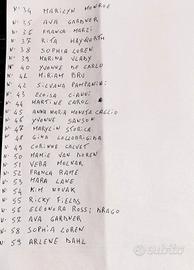 N° 34 MARILYN MONROE
N° 35 AVA GARDNER
N° 36 FRANCA MARZI
N° 37 RITA HAYWORTH
N° 38 SOPHIA LOREN
N° 39 MARINA VLADY
N° 40 YVONNE DE CARLO
N° 41 MIRIAM BRU
N° 42 SILVANA PAMPANINI
N° 43 ELOISA CIANNI
N° 44 MARTINE CAROL
N° 45 ANNA MARIA MONETA CAGLIO
N° 46 YVONNE SANSON
N° 47 MARYLIN
N° 48 GINA LOLLOBRIGIDA
N° 49 CORINNE CALVET
N° 50 MAMIE VAN DOREN
N° 51 VERA MOLNAR
N° 52 FRANCA RAME
N° 53 MARA LANE
N° 54 KIM NOVAK
N° 55 RICKY FIELDS
N° 56 ELEONORA ROSSI DRAGO
N° 57 AVA GARDNER
N° 58 SOPHIA LOREN
N° 59 ARLENE DAHL
subito